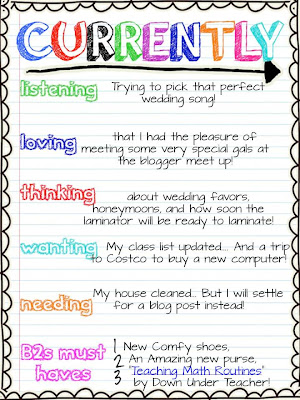 CURRENTLY
listening
Trying to pick that perfect
wedding song!
loving
that I had the pleasure of
meeting some very special gals at
the blogger meet up!
thinking
about wedding favors,
honeymoons, and how soon the
laminator will be ready to laminate!
wanting
My class list updated... And a trip
to Costco to buy a new computer!
needing
My house cleaned... But I will settle
for a blog post instead!
B2s must
haves
1 New Comfy shoes,
2 An Amazing new purse,
3 "Teaching Math Routines"
by Down Under Teacher!